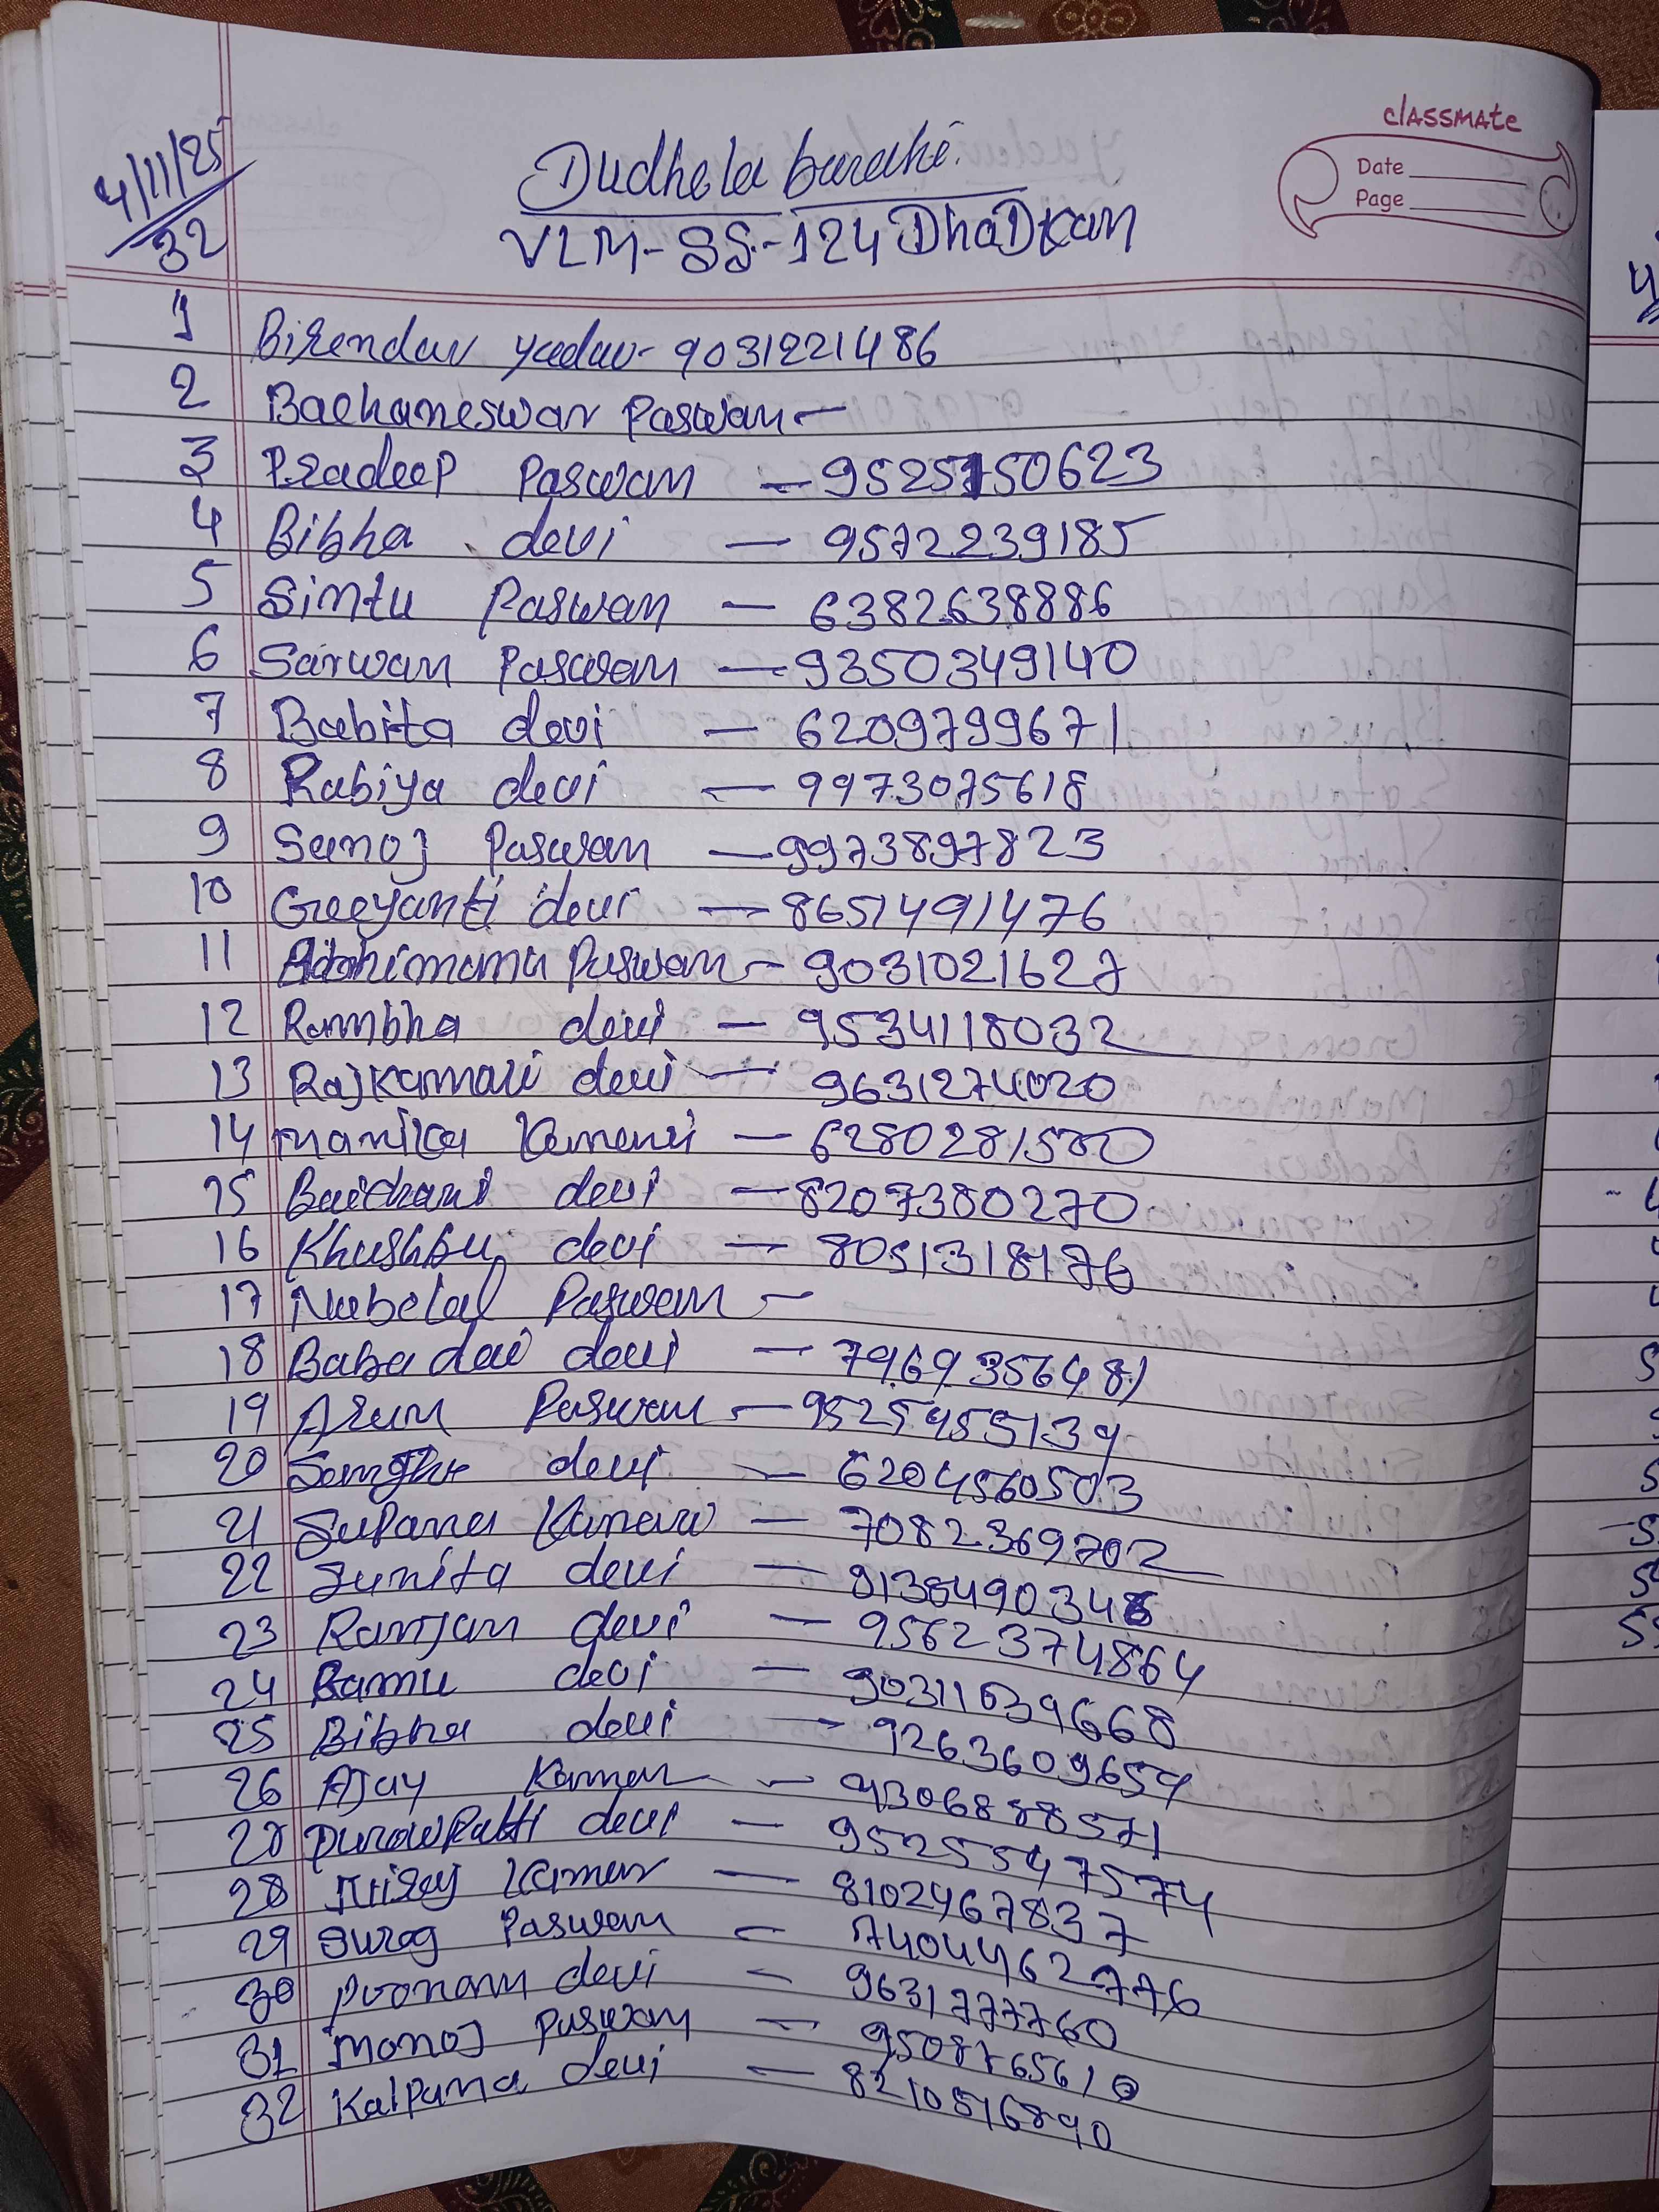 classmate
Date
Page
4/11/25
32
Dudhela barahi.
VLM-SS-124 DhaDkan
1 Birendar yadav- 9031221486
2 Bachaneswar Paswan-
3 Pradeep Paswan - 9525150623
4 Bibha devi - 9572239185
5 Sintu Paswan - 6382638886
6 Sarwan Paswan - 9350349140
7 Babita devi - 6209799671
8 Rabiya devi - 9973075618
9 Sanoj Paswan - 9973897823
10 Geeyanti devi - 8651491476
11 Abhimanu Paswan - 9031021627
12 Rambha devi - 9534118032
13 Rajkamari devi - 9631274020
14 Manika Kumari - 6280281500
15 devi - 8207380270
16 Khushbu devi - 8051318176
17 Nabelal Paswan -
18 Baba devi - 7969356481
19 Arun Paswan - 9525455134
20 devi - 6204560503
21 Sapana Kumari - 7082369702
22 Sunita devi - 9138490348
23 Ranjan devi - 9562374864
24 Ramu devi - 90311639668
25 Bibha devi - 9263609659
26 Ajay Kumar - 9306888571
devi - 9525547574
28 Kumar - 8102467837
29 Surag Paswan - 7404462776
30 Poonam devi - 9631777760
31 Monoj Paswan - 9508765610
32 Kalpana devi - 8210516890